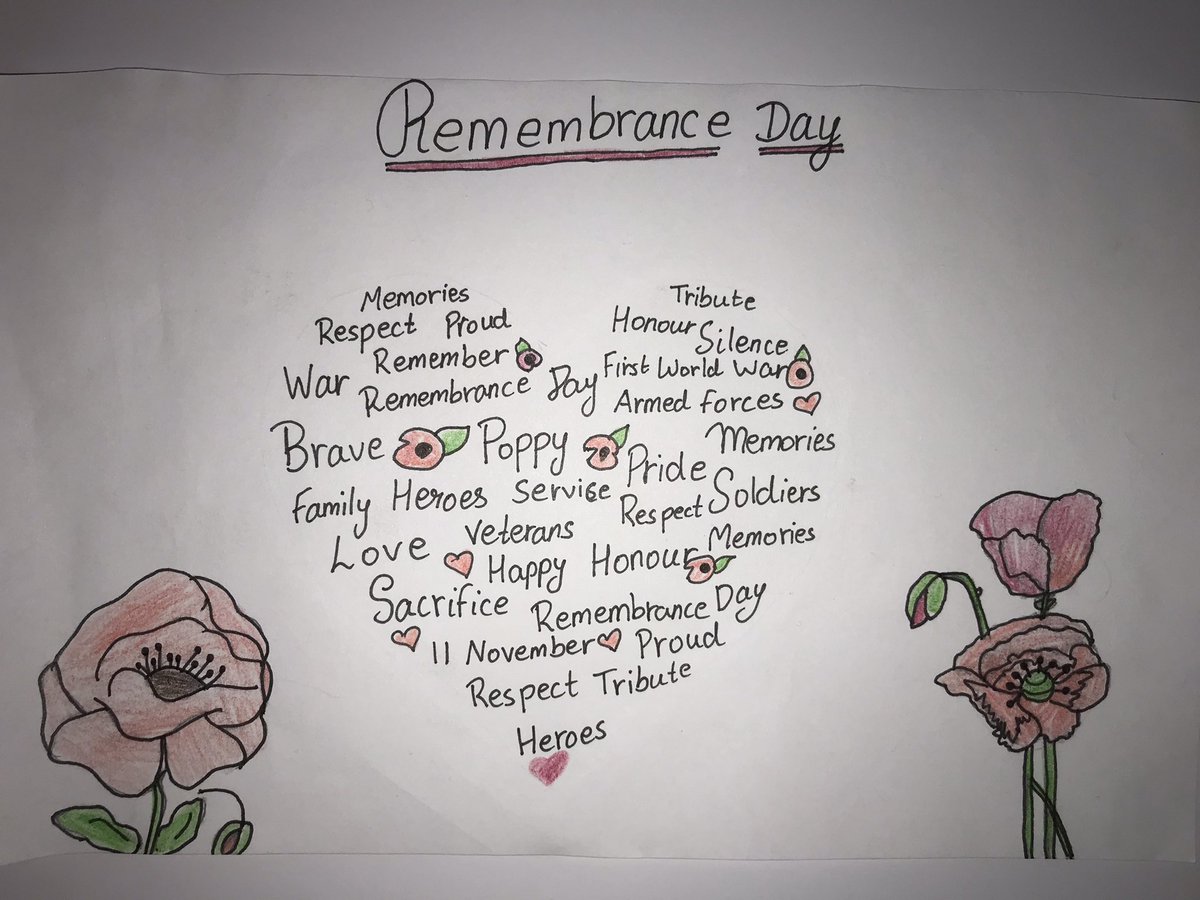 Remembrance Day
Memories
Tribute
Respect Proud
Honour
Remember
Silence
War
First World War
Remembrance Day
Armed forces
Brave Poppy
Memories
Pride
Family Heroes Service
Soldiers
Respect
Veterans
Love
Memories
Happy Honour
Sacrifice
Remembrance Day
11 November Proud
Respect Tribute
Heroes